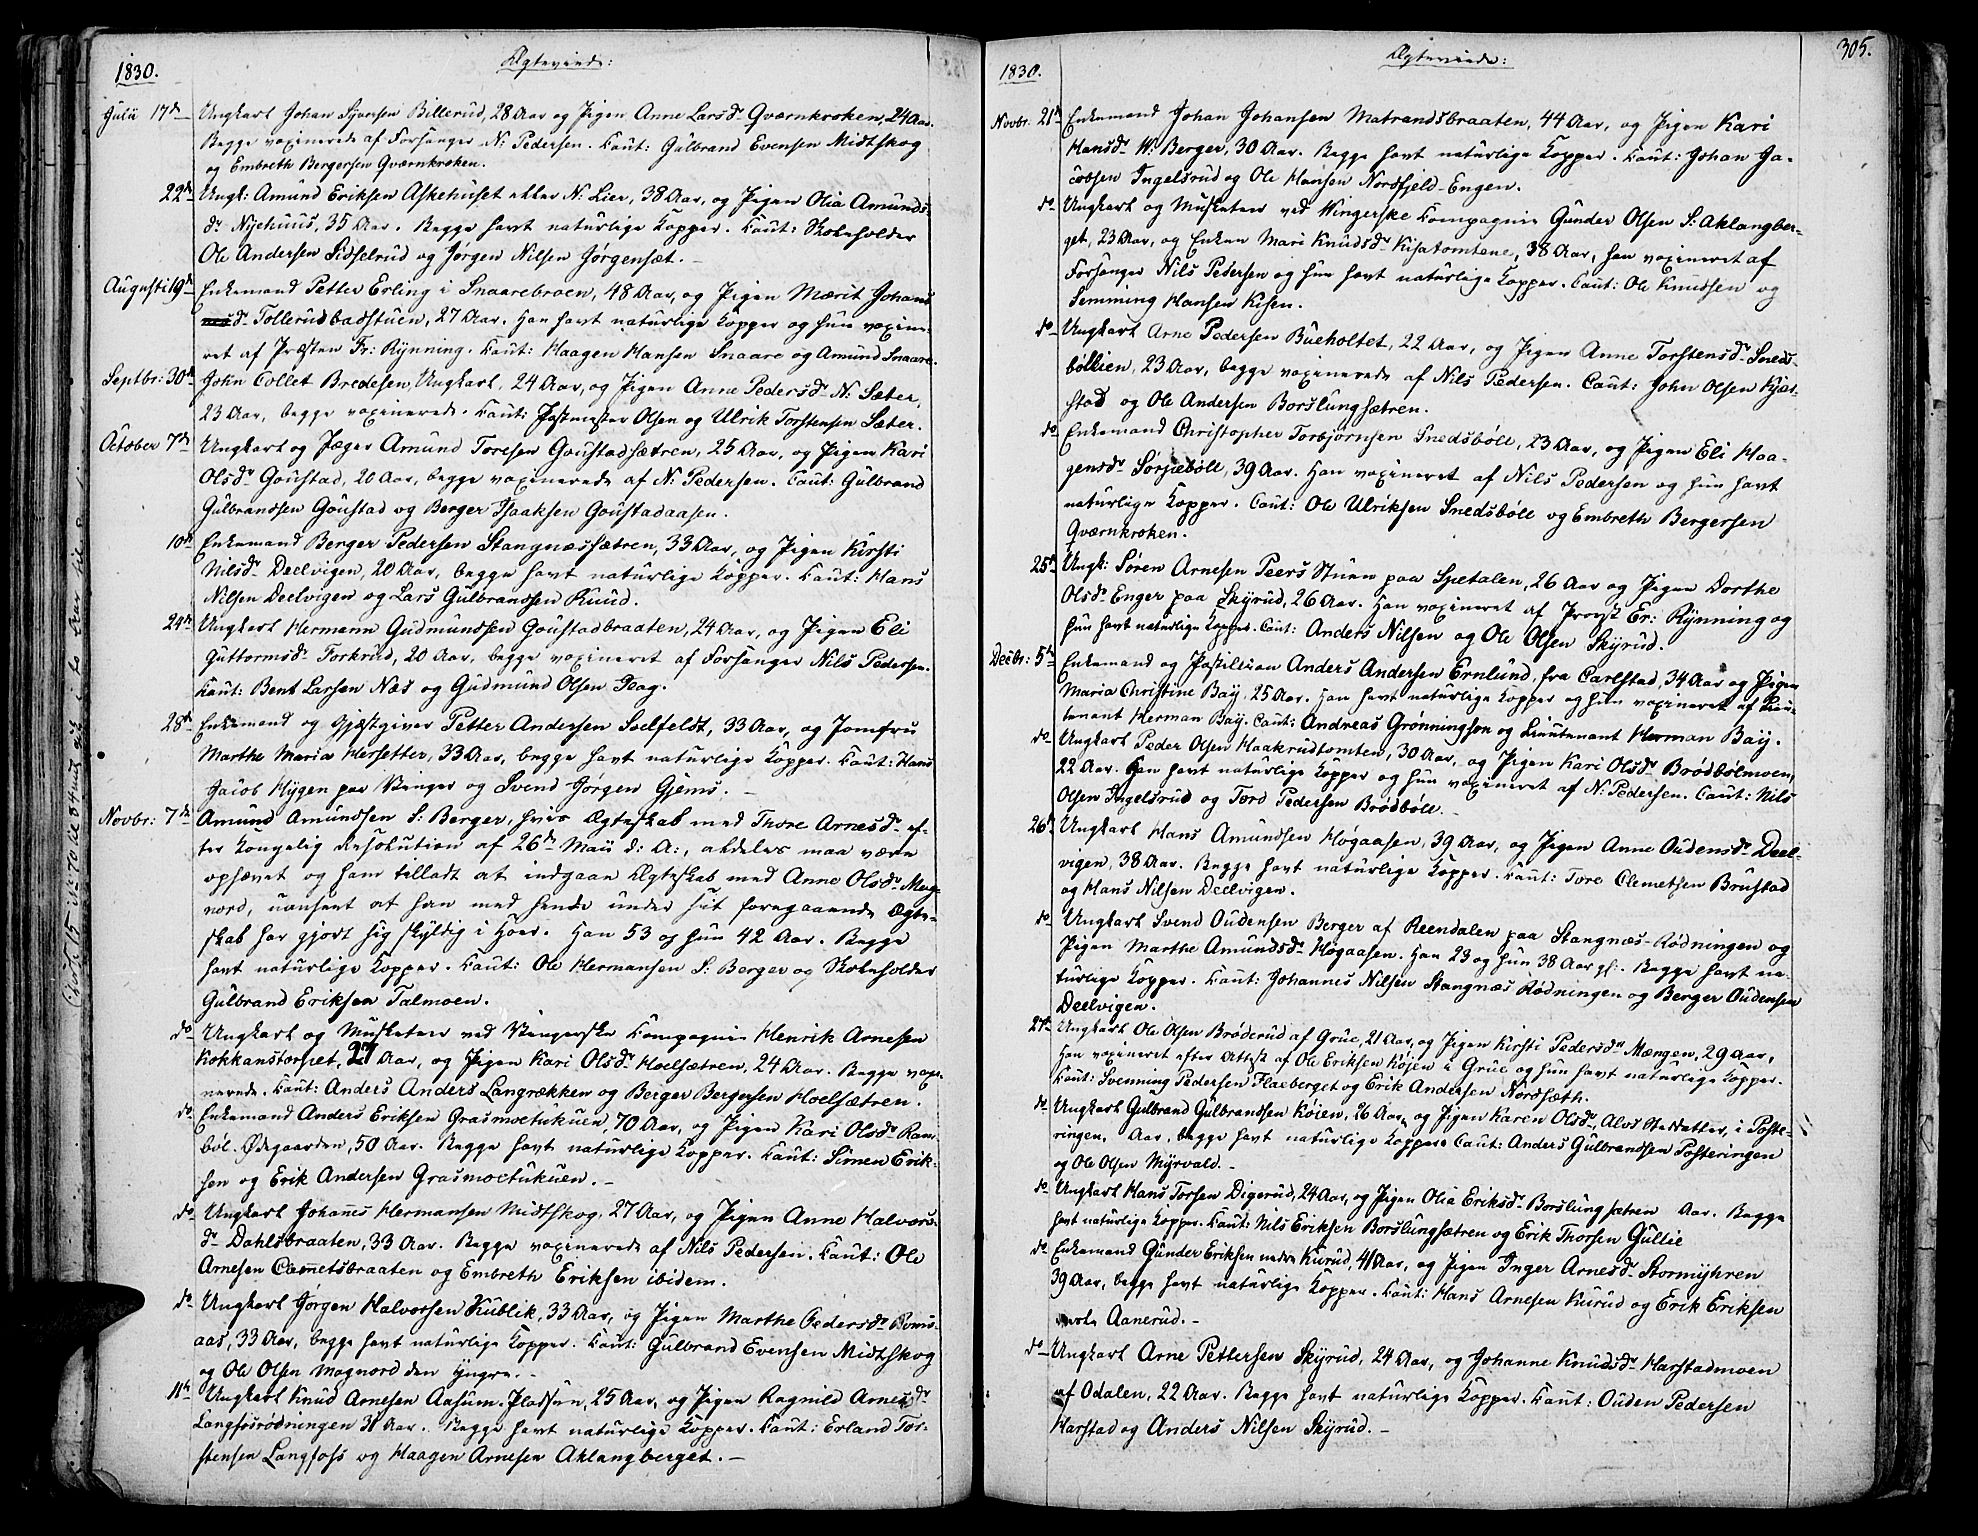 1830. Ægteviede:
Julii 17de Ungkarl Johan Syversen Billerud, 28 Aar og Pigen Anne Larsdr Qværnkroken, 24 Aar.
Begge vaxinerede af Forsanger N: Pedersen. Caut: Gulbrand Evensen Midtskog
og Embreth Bergersen Qværnkroken.
22de Ungk: Amund Eriksen Askehuset eller N: Lier, 38 Aar, og Pigen Olia Amunds-
dr Nyehuus, 35 Aar. Begge havt naturlige Kopper. Caut: Skoleholder
Ole Andersen Sidselrud og Jørgen Nilsen Jørgensæt.
Augusti 19de Enkemand Petter Erling i Snaarebroen, 48 Aar, og Pigen Mærit Johans
dr Tollerudbadstuen, 27 Aar. Han havt naturlige Kopper og hun vaxine-
ret af Præsten Fr: Rynning. Caut: Haagen Hansen Snaare og Amund Snaare.
Septbr: 30te John Collet Bredesen, Ungkarl, 24 Aar, og Pigen Anne Pedersdr N: Sæter,
23 Aar, begge vaxinerede. Caut: Postmester Olsen og Ulrik Torstensen Sæter.
October 7de Ungkarl og Jæger Amund Toresen Goustadsætren, 25 Aar, og Pigen Kari
Olsdr Goustad, 20 Aar, begge vaxinerede af N: Pedersen. Caut: Gulbrand
Gulbrandsen Goustad og Berger Isaaksen Goustadaasen.
10de Enkemand Berger Pedersen Stangnæssætren, 33 Aar, og Pigen Kirsti
Nilsdr Deelvigen, 20 Aar, begge havt naturlige Kopper. Caut: Hans
Nilsen Deelvigen og Lars Gulbrandsen Ruud.
24de Ungkarl Hermann Gudmundsen Goustadbraaten, 24 Aar, og Pigen Eli
Guttormsdr Torkrud, 20 Aar, begge vaxineret af Forsanger Nils Pedersen.
Caut: Bent Larsen Næs og Gudmund Olsen
28de Enkemand og Gjæstgiver Petter Andersen Solfeldt, 33 Aar, og Jomfru
Marthe Maria Hersetter, 33 Aar, begge havt naturlige Kopper. Caut: Hans
Jacob Hygen paa Vinger og Svend Jørgen Gjems.
Novbr: 7de Amund Amundsen S: Berger, hvis Ægteskab med Thore Arnesdr ef-
ter Kongelig Resolution af 26de Maii d: A:, aldeles maa være
ophævet og ham tilladt at indgaae Ægteskab med Anne Olsdr Mag-
nord, uanseet at han med hende under sit foregaaende Ægte-
skab har gjort sig skyldig i Hoer. Han 53 og hun 42 Aar. Begge
havt naturlige Kopper. Caut: Ole Hermansen S: Berger og Skoleholder
Gulbrand Eriksen Talmoen.
do Ungkarl og Musketeer ved Vingerske Compagnie Henrik Arnesen
Kokkanstorpet, 27 Aar, og Pigen Kari Olsdr Hoelsætren, 24 Aar. Begge vaxi-
nerede. Caut: Anders Anders Langrækken og Berger Bergersen Hoelsætren.
do Enkemand Anders Eriksen Grasmoetukuen, 70 Aar, og Pigen Kari Olsdr Ram-
böl. Ødegaarden, 50 Aar. Begge havt naturlige Kopper. Caut: Simen Erik-
sen og Erik Andersen Grasmoetukuen.
do Ungkarl Johannes Hermansen Midtskog, 27 Aar, og Pigen Anne Halvors-
dr Dahlsbraaten, 33 Aar. Begge vaxinerede af Nils Pedersen. Caut: Ole
Arnesen Clemetsbraaten og Embreth Eriksen ibidem.
do Ungkarl Jörgen Halvorsen Kublik, 33 Aar, og Pigen Marthe Pedersdr Boms-
aas, 33 Aar, begge havt naturlige Kopper. Caut: Gulbrand Evensen Midtskog
og Ole Olsen Magnord den yngre.
11te Ungkarl Knud Arnesen Aasum-Pladsen, 25 Aar, og Pigen Ragnild Arnesdr
Langfosrödningen 31 Aar. Begge havt naturlige Kopper. Caut: Erland Tor-
stensen Langfoss og Haagen Arnesen Aklangberget.
1830. Ægteviede: 305.
Novbr. 21de Enkemand Johan Johansen Matrandsbraaten, 44 Aar, og Pigen Kari
Hansdr W: Berger, 30 Aar. Begge havt naturlige Kopper. Caut: Johan Ja-
cobsen Ingelsrud og Ole Hansen Nordfjeld-Engen.
do Ungkarl og Musketeer ved Wingerske Compagnie Gunder Olsen S: Aklangber-
get, 23 Aar, og Enken Mari Knudsdr Kisatomtene, 38 Aar, han vaxineret af
Forsanger Nils Pedersen og hun havt naturlige Kopper. Caut: Ole Knudsen og
Semming Hansen Kisen.
do Ungkarl Arne Pedersen Bueholtet, 22 Aar, og Pigen Anne Torstensdr Sneds-
böllien, 23 Aar, begge vaxinerede af Nils Pedersen. Caut: John Olsen Kjæt-
stad og Ole Andersen Borslungsætren.
do Enkemand Christopher Torbjørnsen Snedsböle, 23 Aar, og Pigen Eli Haa-
gensdr Sorpeböll, 39 Aar. Han vaxineret af Nils Pedersen og hun havt
naturlige Kopper. Caut: Ole Ulriksen Snedsböle og Embreth Bergersen
Qværnkroken.
25de Ungk: Sören Arnesen Peers Stuen paa Spetalen, 26 Aar og Pigen Dorthe
Olsdr Enger paa Skyrud, 26 Aar. Han vaxineret af Provst Er: Rynning og
hun havt naturlige Kopper. Caut: Anders Nilsen og Ole Olsen Skyrud.
Decbr: 5te Enkemand og Postillion Anders Andersen Ernlund, fra Carlstad, 34 Aar og Pigen
Maria Christine Bay, 25 Aar. Han havt naturlige Kopper og hun vaxineret af Lieu-
tenant Herman Bay. Caut: Andreas Grönningson og Lieutenant Herman Bay.
do Ungkarl Peder Olsen Haakrudtomten, 30 Aar, og Pigen Kari Olsdr Brödbölmoen,
22 Aar. Han havt naturlige Kopper og hun vaxineret af N: Pedersen. Caut: Nils
Olsen Ingelsrud og Tord Pedersen Brödböle.
26de Ungkarl Hans Amundsen Högaasen, 39 Aar, og Pigen Anne Oudensdr Deel-
vigen, 38 Aar. Begge havt naturlige Kopper. Caut: Tore Clemetsen Brustad
og Hans Nilsen Deelvigen.
do Ungkarl Svend Oudensen Berger af Reendalen paa Stangnæs-Rödningen og
Pigen Marthe Amundsdr Högaasen. Han 23 og hun 38 Aar gl:. Begge havt na-
turlige Kopper. Caut: Johannes Nilsen Stangnæs Rödningen og Berger Oudensen
Deelvigen.
27de Ungkarl Ole Olsen Bröderud af Grue, 21 Aar, og Pigen Kirsti Pedersdr Mængen, 29 Aar,
Han vaxineret efter Attest af Ole Eriksen Köjen i Grue og hun havt naturlige Kopper.
Caut: Svenning Pedersen Flaeberget og Erik Andersen Nordsæth.
do Ungkarl Gulbrand Gulbrandsen Köien, 26 Aar, og Pigen Karen Olsdr, i Poste-
ringen, Aar, begge havt naturlige Kopper. Caut: Anders Gulbrandsen Posteringen
og Ole Olsen Myrvald.
do Ungkarl Hans Torsen Digerud, 24 Aar, og Pigen Olia Eriksdr Borslungsætren Aar. Begge
havt naturlige Kopper. Caut: Nils Eriksen Borslungsætren og Erik Thorsen Gullie
do Enkemand Gunder Eriksen nedre Kurud, 41 Aar, og Pigen Inger Arnesdr Stormyhren
39 Aar, begge havt naturlige Kopper. Caut: Hans Arnesen Kurud og Erik Eriksen
Aanerud.
do Ungkarl Arne Pettersen Skyrud, 24 Aar, og Johanne Knudsdr Harstadmoen
af Odalen, 22 Aar. Begge havt naturlige Kopper. Caut: Ouden Pedersen
Harstad og Anders Nilsen Skyrud.